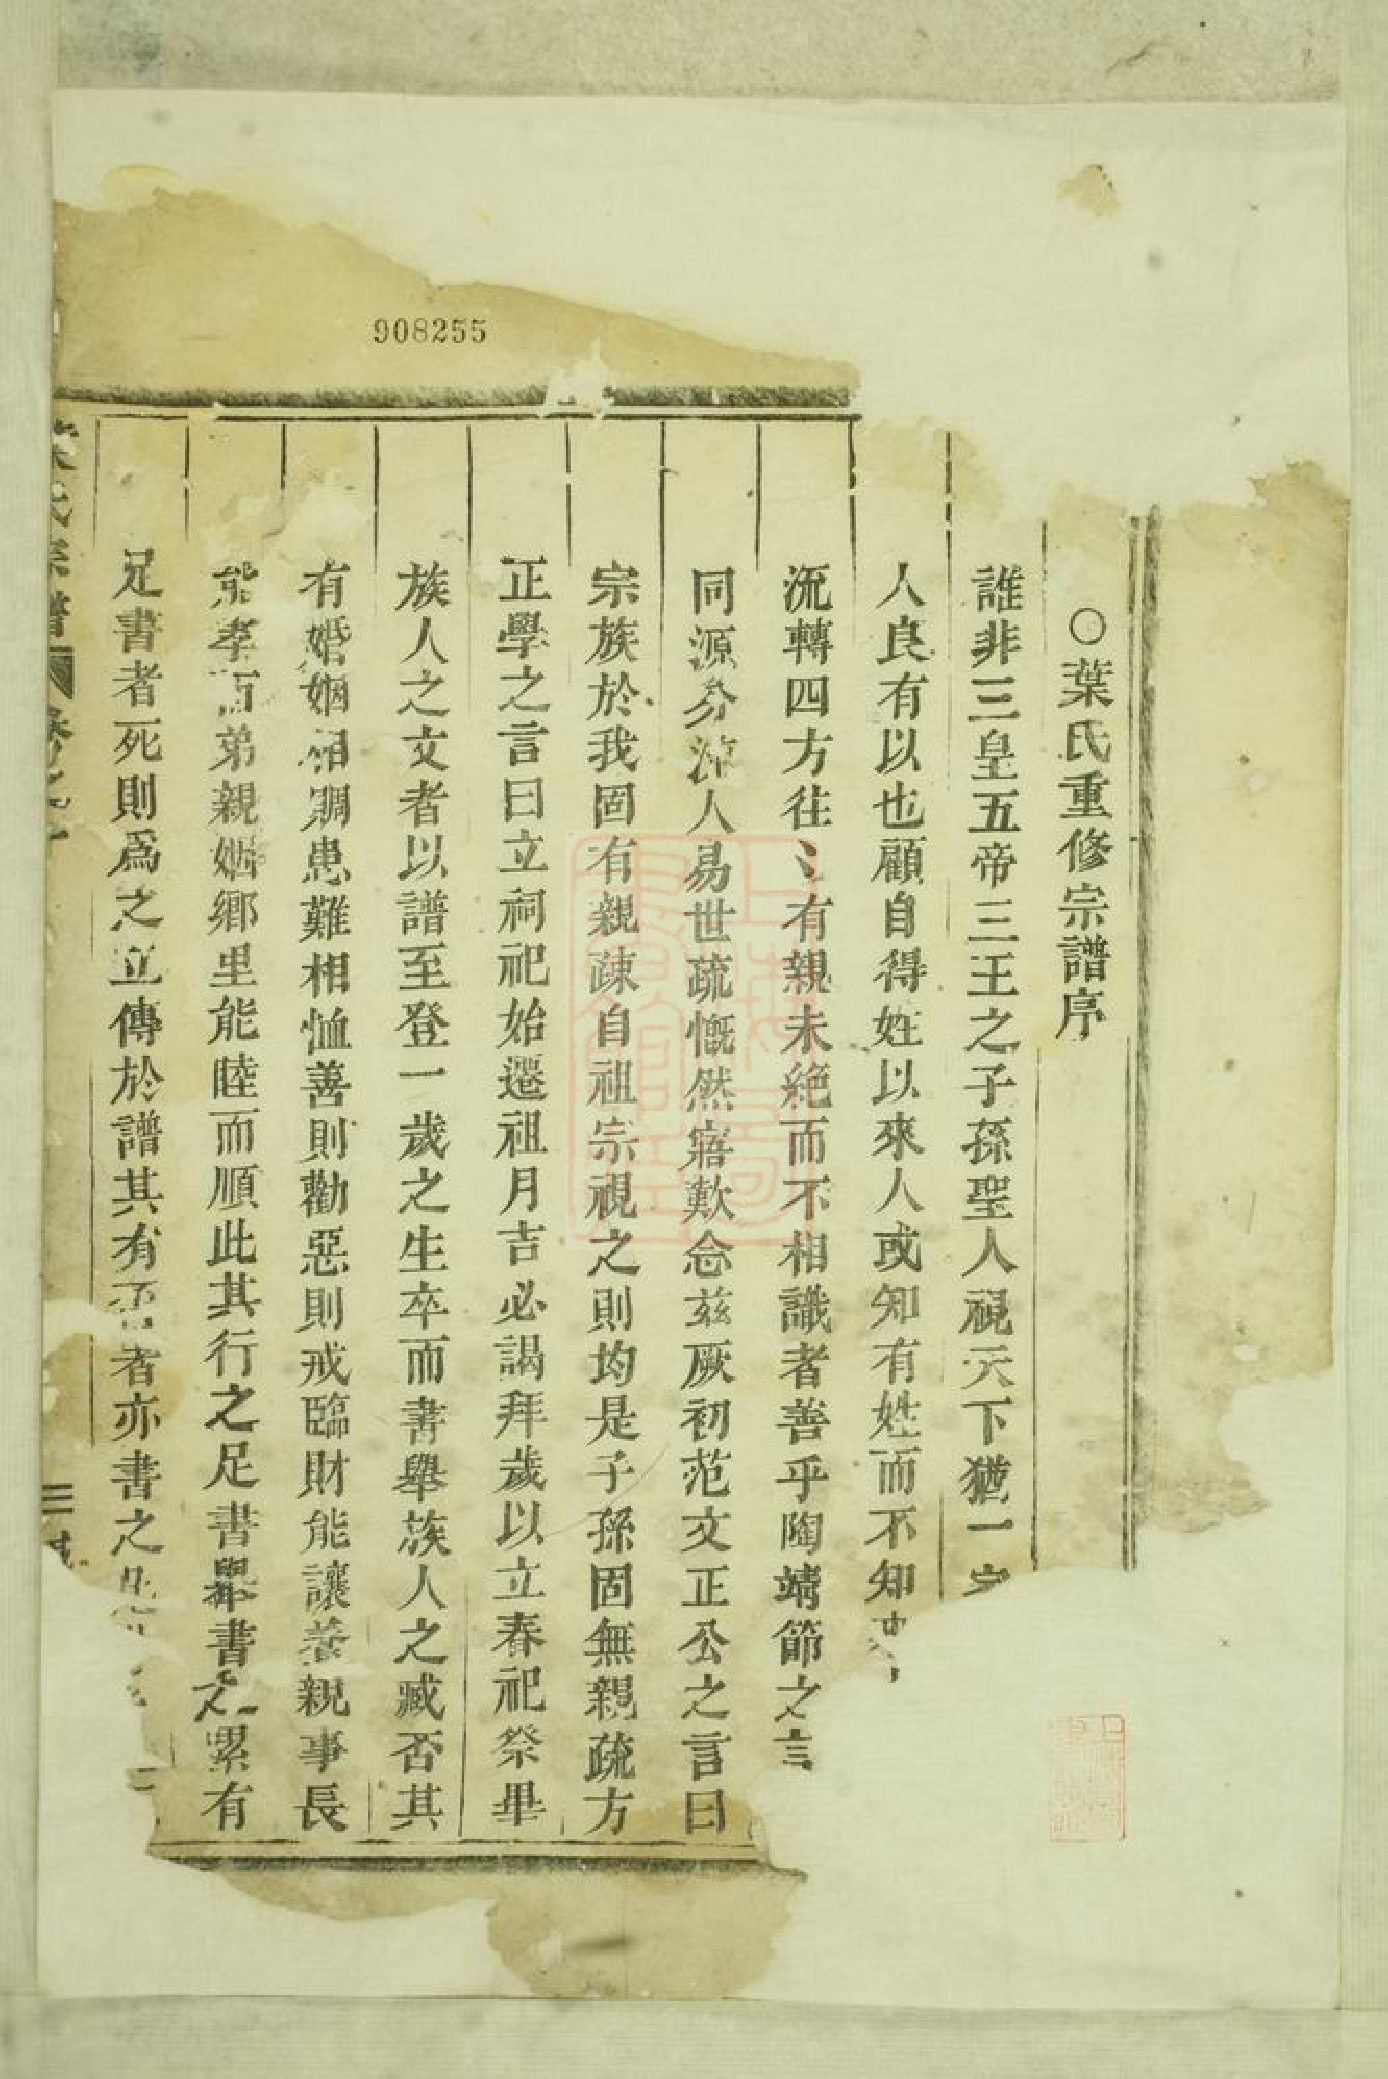 908255
○葉氏重修宗譜序
誰非三皇五帝三王之子孫聖人視天下猶一
人良有以也顧自得姓以來人或知有姓而不知
流轉四方往〻有親未絶而不相識者善乎陶靖節之言
同源分流人易世疏慨然寤歎念兹厥初范文正公之言曰
宗族於我固有親疎自祖宗視之則均是子孫固無親疏方
正學之言曰立祠祀始遷祖月吉必謁拜歲以立春祀祭畢
族人之文者以譜至登一歲之生卒而書舉族人之臧否其
有婚姻相賙患難相恤善則勸惡則戒臨財能讓養親事長
能孝而弟親姻鄉里能睦而順此其行之足書舉書之累有
足書者死則爲之立傳於譜其有惡者亦書之
葉氏宗譜 卷之一
三
上海圖書館藏